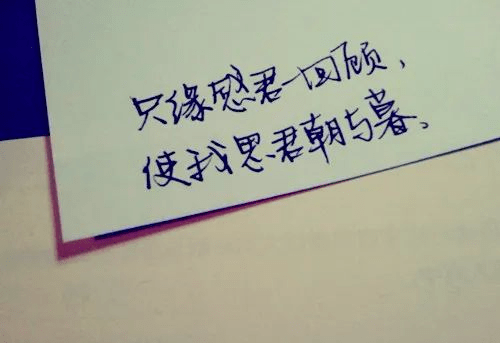 只缘感君一回顾，
使我思君朝与暮、